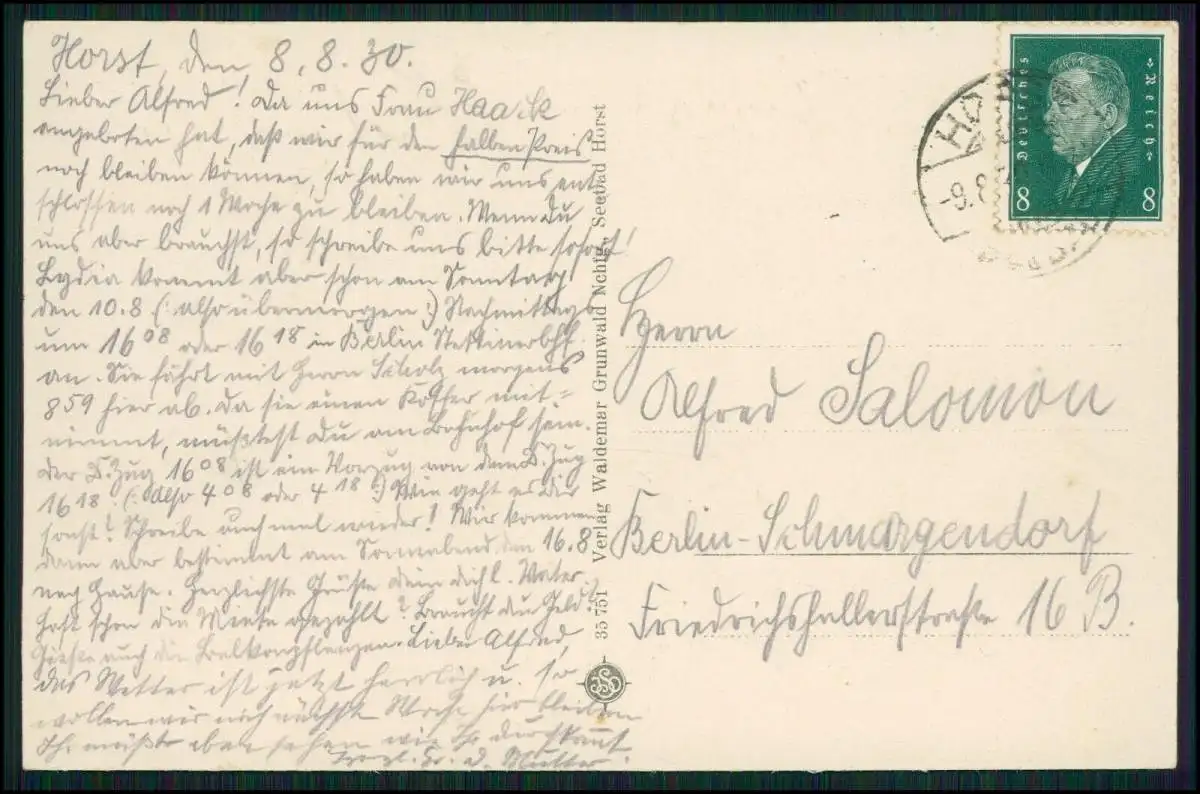 Horst, den 8.8.30.
Lieber Alfred! Da uns Frau Haack
angeboten hat, daß wir für den halben Preis
noch bleiben können, so haben wir uns ent-
schlossen noch 1 Woche zu bleiben. Wenn Du
uns aber brauchst, so schreibe uns bitte sofort!
Lydia kommt aber schon am Sonntag
den 10.8 (: also übermorgen :) Nachmittags
um 16 08 oder 16 18 in Berlin Stettinerbhf.
an. Sie fährt mit Herrn Scholz morgens
859 hier ab. Da sie einen Koffer mit-
nimmt, müßtest Du am Bahnhof sein.
Der D.Zug 16 08 ist ein Vorzug von dem D.Zug
16 18 (: also 4 08 oder 4 18 :) Wie geht es Dir
sonst? Schreibe auch mal wieder! Wir kommen
dann aber bestimmt am Sonnabend den 16.8.
nach Hause. Herzlichste Grüße Dein Dich l. Vater.
Hast schon die Miete gezahlt? Brauchst du Geld?
Gieße auch die Balkonpflanzen. Lieber Alfred,
das Wetter ist jetzt herrlich u. so
wollen wir noch nächste Woche hier bleiben
Ihr müßt eben sehen wie Ihr durchkommt.
Herzl. Gr. d. Mutter.
35 751 Verlag Waldemar Grunwald Nchfg. Seebad Horst
Deutsches Reich
8 8
HO
-9.8.
Herrn
Alfred Salomon
Berlin-Schmargendorf
Friedrichshallerstraße 16 B.